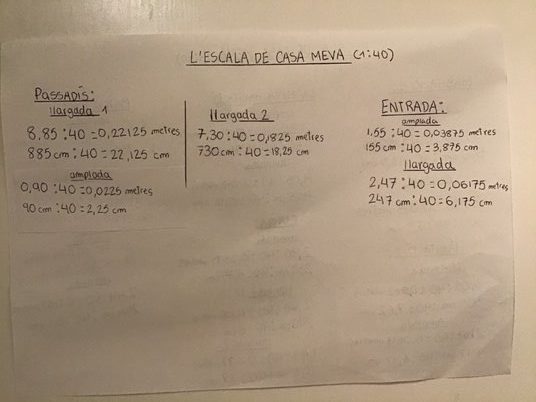 L'ESCALA DE CASA MEVA (1:40)
PASSADÍS:
llargada 1
8,85 : 40 = 0,22125 metres
885 cm : 40 = 22,125 cm
amplada
0,90 : 40 = 0,0225 metres
90 cm : 40 = 2,25 cm
llargada 2
7,30 : 40 = 0,1825 metres
730 cm : 40 = 18,25 cm
ENTRADA:
amplada
1,55 : 40 = 0,03875 metres
155 cm : 40 = 3,875 cm
llargada
2,47 : 40 = 0,06175 metres
247 cm : 40 = 6,175 cm